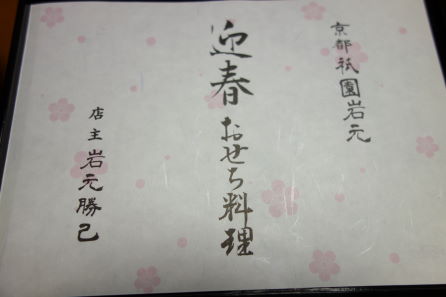 京都祇園岩元
迎春おせち料理
店主 岩元勝己